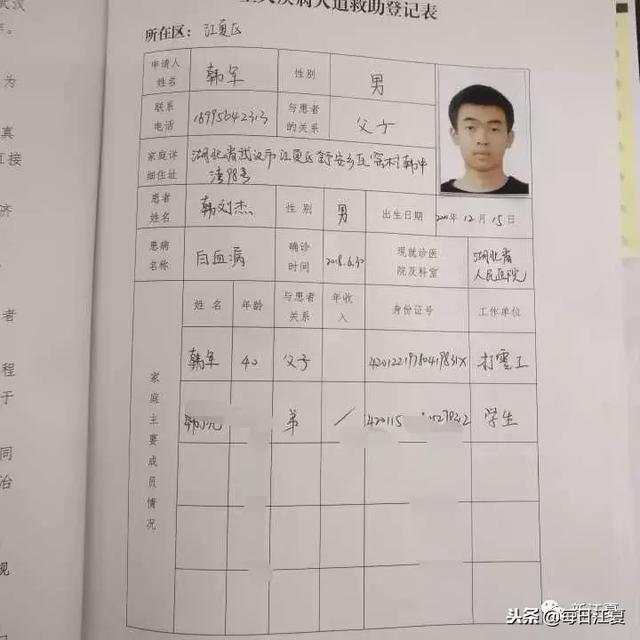 重大疾病人道救助登记表
所在区：江夏区
申请人姓名 韩军 性别 男
联系电话 与患者的关系 父子
家庭详细住址 湖北省武汉市江夏区舒安乡 村韩 湾98号
患者姓名 韩刘杰 性别 男 出生日期 年12月15日
患病名称 白血病 确诊时间 2018.6.30 现就诊医院及科室 湖北省人民医院
家庭主要成员情况
姓名 年龄 与患者关系 年收入 身份证号 工作单位
韩军 40 父子 打零工
弟 / 420115 学生
为
真
直接
济
者
程
于
同
治
规
新江夏
头条@每日江夏